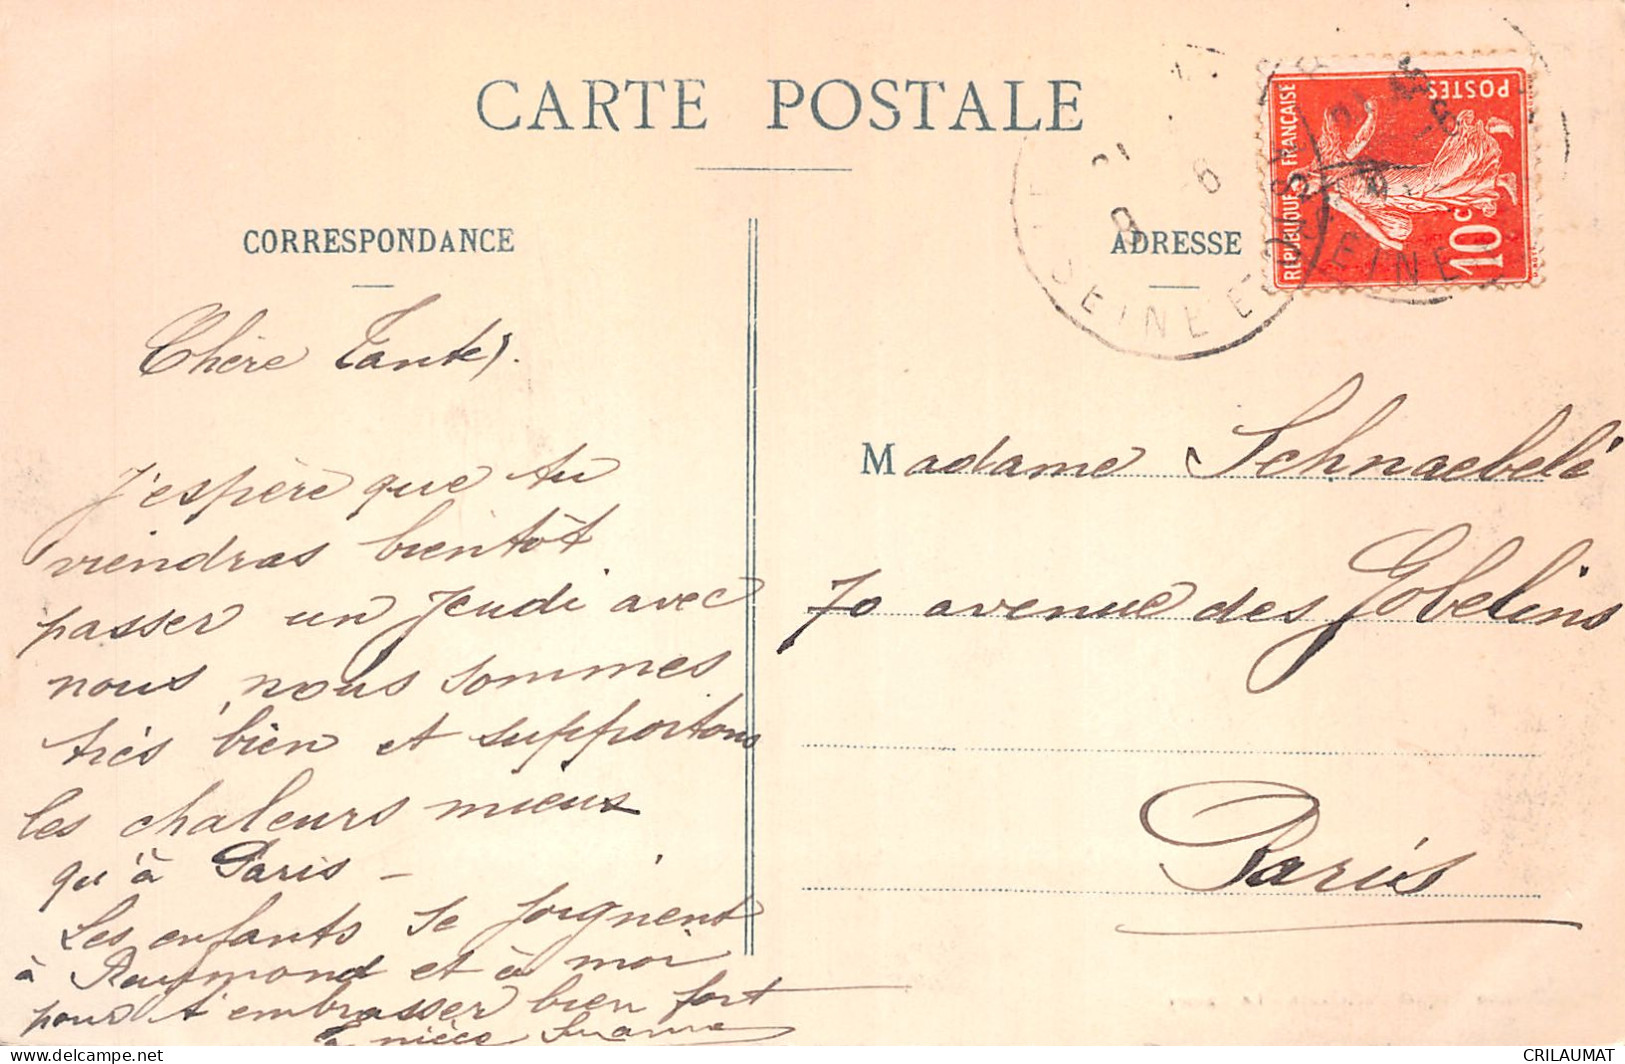 CARTE POSTALE
CORRESPONDANCE
ADRESSE
RÉPUBLIQUE FRANÇAISE
POSTES
10c
SEINE
Chère Tante,
J'espère que tu
viendras bientôt
passer un Jeudi avec
nous, nous sommes
très bien et supportons
les chaleurs mieux
qu'à Paris –
Les enfants se joignent
à Raymond et à moi
pour t'embrasser bien fort
nièce Suzanne
Madame Schnaebelé
70 avenue des Gobelins
Paris
CRILAUMAT